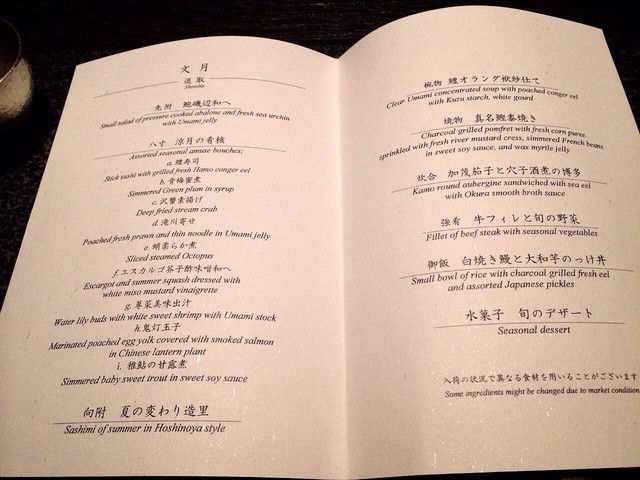 文月
進取
Shinshu
先附 鮑磯辺和へ
Small salad of pressure cooked abalone and fresh sea urchin
with Umami jelly
八寸 涼月の肴核
Assorted seasonal amuse bouches;
a.鱧寿司
Stick sushi with grilled fresh Hamo conger eel
b.青梅蜜煮
Simmered Green plum in syrup
c.沢蟹素揚げ
Deep fried stream crab
d.滝川寄せ
Poached fresh prawn and thin noodle in Umami jelly
e.蛸柔らか煮
Sliced steamed Octopus
f.エスカルゴ芥子酢味噌和へ
Escargot and summer squash dressed with
white miso mustard vinaigrette
g.蓴菜美味出汁
Water lily buds with white sweet shrimp with Umami stock
h.鬼灯玉子
Marinated poached egg yolk covered with smoked salmon
in Chinese lantern plant
i.稚鮎の甘露煮
Simmered baby sweet trout in sweet soy sauce
向附 夏の変わり造里
Sashimi of summer in Hoshinoya style
椀物 鱧オランダ袱紗仕て
Clear Umami concentrated soup with poached conger eel
with Kuzu starch, white gourd
焼物 真名鰹黍焼き
Charcoal grilled pomfret with fresh corn puree
sprinkled with fresh river mustard cress, simmered French beans
in sweet soy sauce, and wax myrtle jelly
炊合 加茂茄子と穴子酒煮の博多
Kamo round aubergine sandwiched with sea eel
with Okura smooth broth sauce
強肴 牛フィレと旬の野菜
Fillet of beef steak with seasonal vegetables
御飯 白焼き鰻と大和芋のっけ丼
Small bowl of rice with charcoal grilled fresh eel
and assorted Japanese pickles
水菓子 旬のデザート
Seasonal dessert
入荷の状況で異なる食材を用いることがございます
Some ingredients might be changed due to market condition